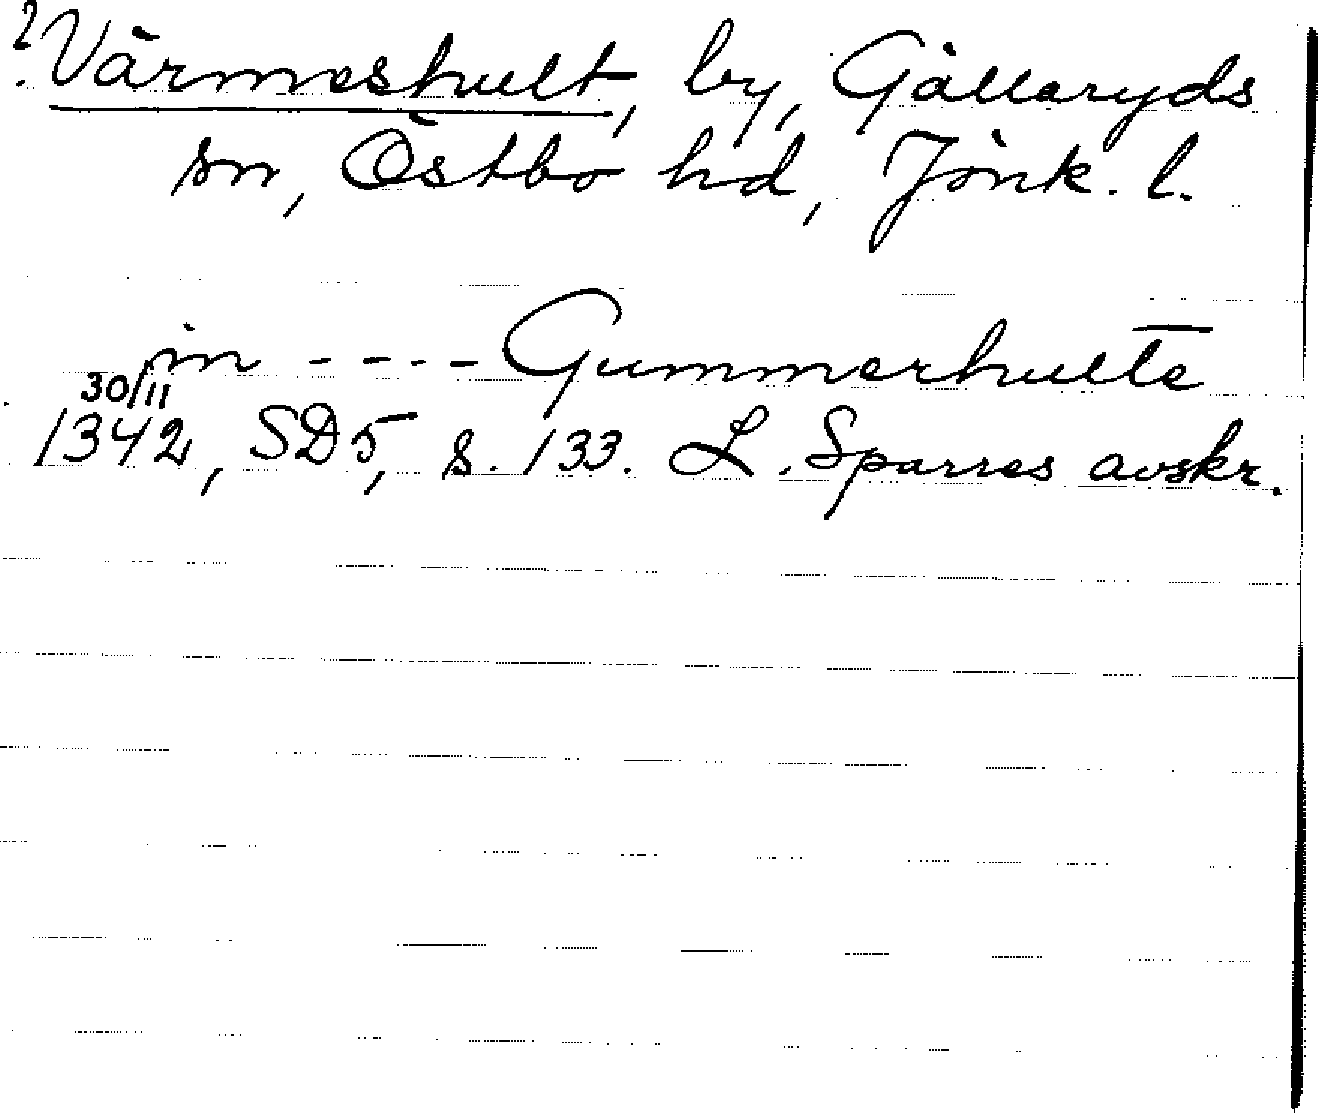 ? Värmeshult, by, Gällaryds
sn, Östbo hd, Jönk. l.
in ---- Gummerhulte
30/11
1342, SD5, s. 133. L. Sparres avskr.